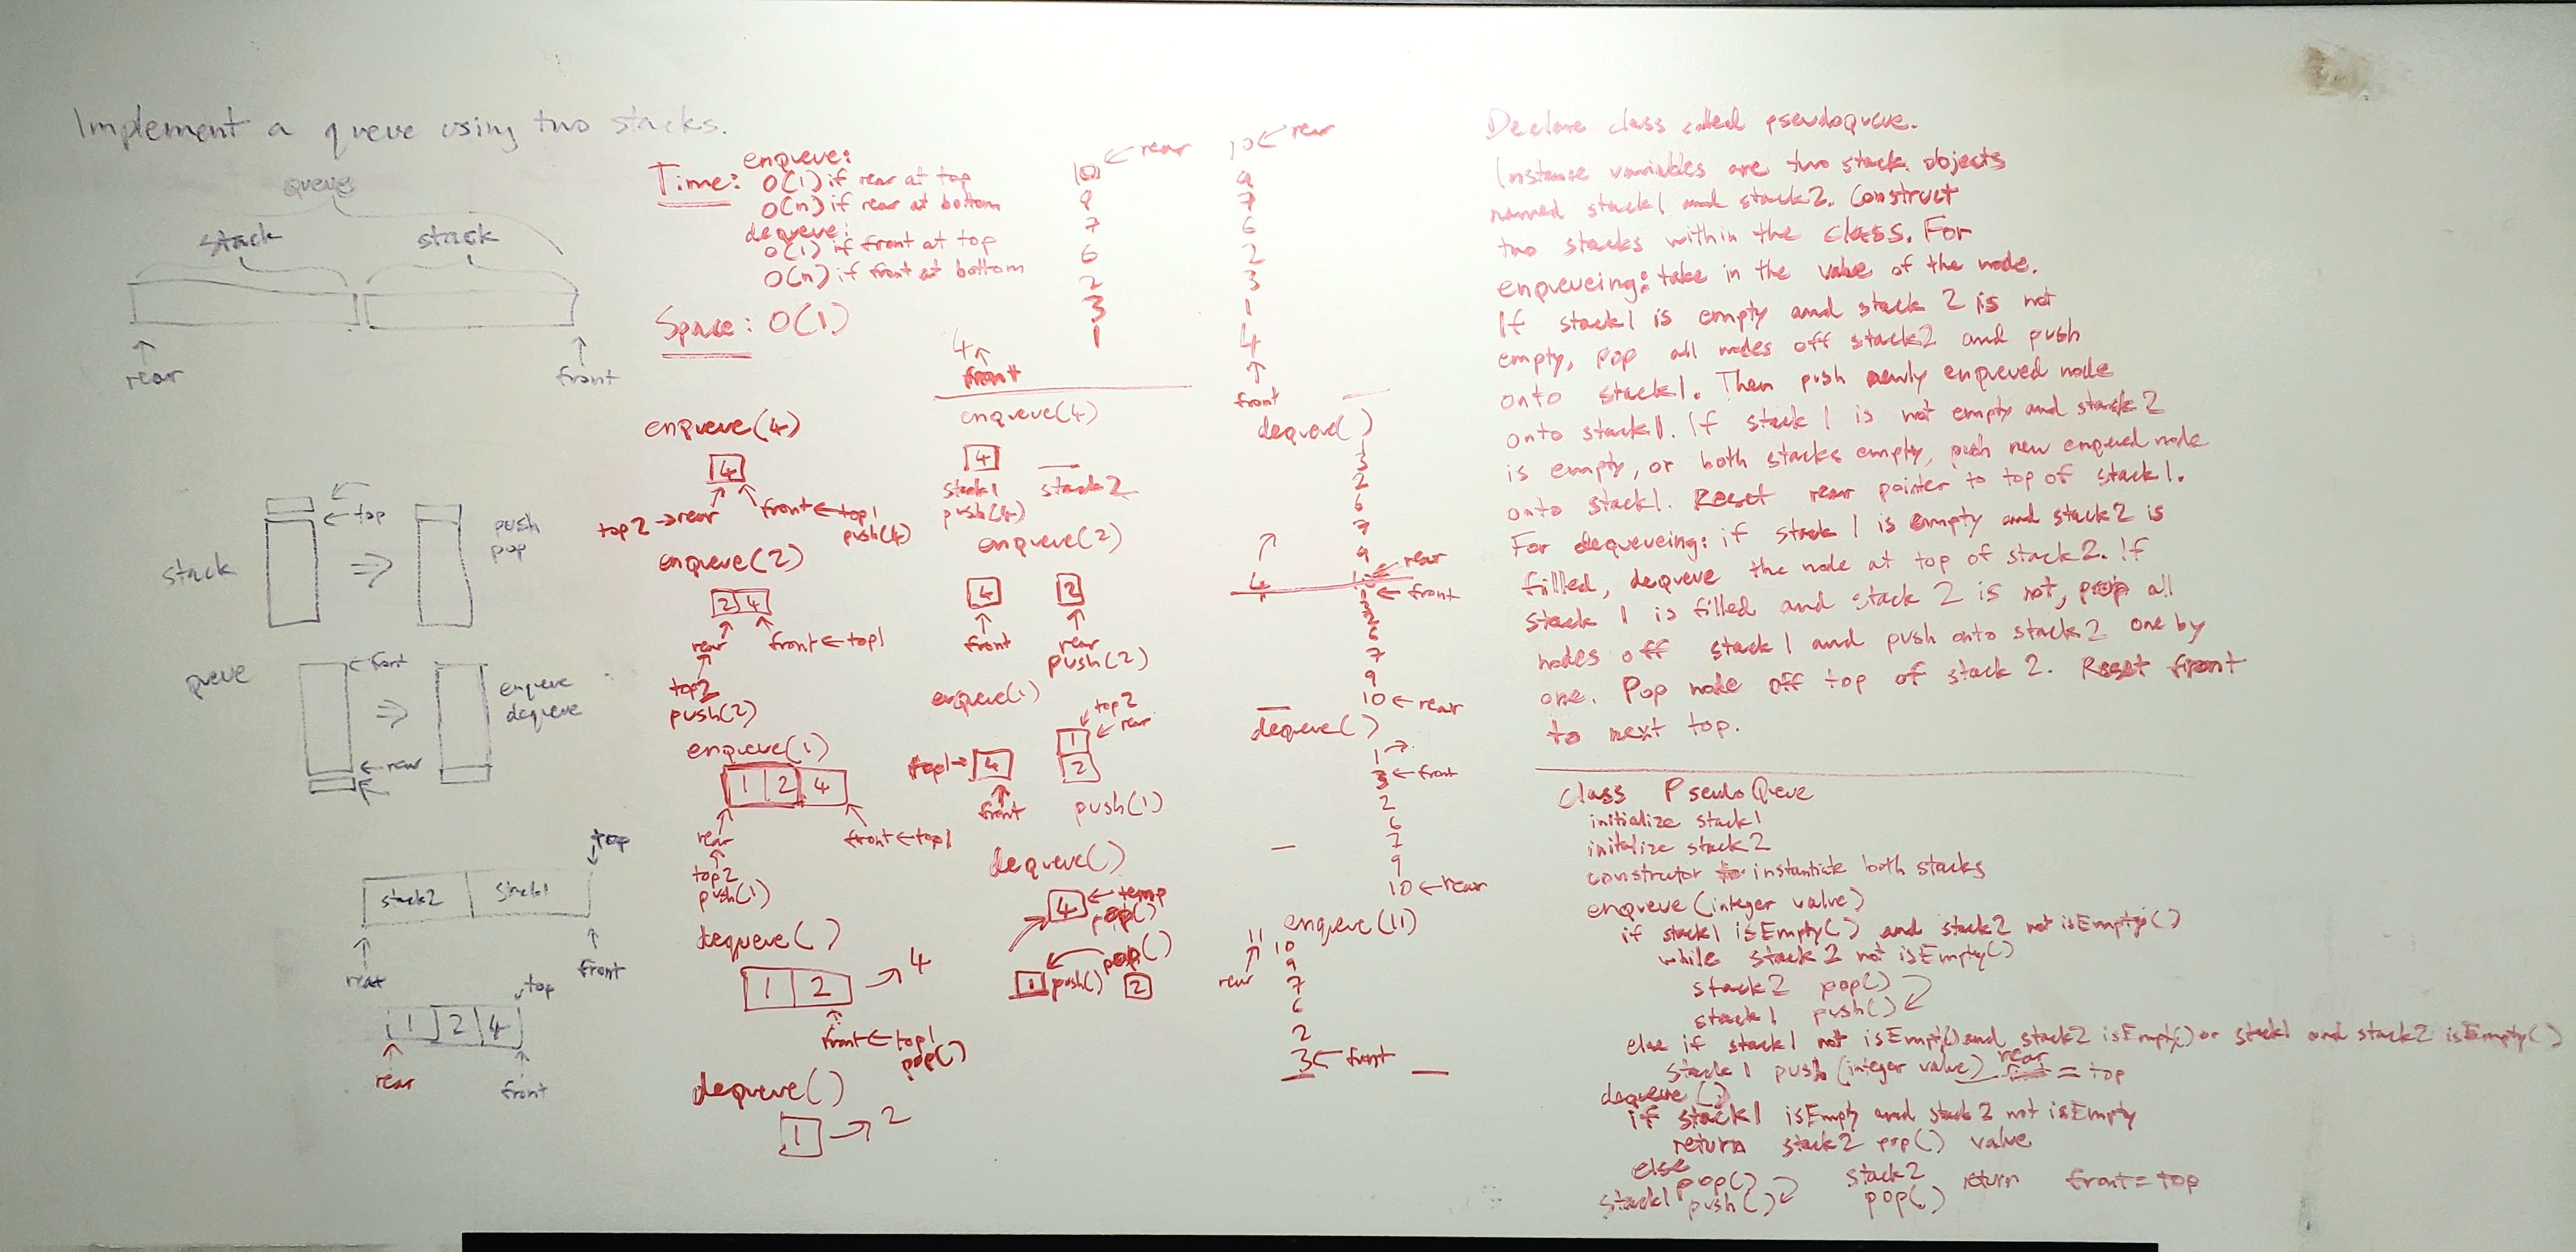 Implement a queue using two stacks.
queue
stack
stack
rear
front
stack
top
push
pop
queue
front
rear
enqueue
dequeue
top
stack2
stack1
rear
front
top
1 2 4
rear
front
Time:
enqueue:
O(1) if rear at top
O(n) if rear at bottom
dequeue:
O(1) if front at top
O(n) if front at bottom
Space: O(1)
enqueue(4)
4
top2 → rear
front ← top1
push(4)
enqueue(2)
2 4
rear
front ← top1
top2
push(2)
enqueue(1)
1 2 4
rear
front ← top1
top2
push(1)
dequeue()
1 2 → 4
front ← top1
pop()
dequeue()
1 → 2
10 ← rear
9
7
6
2
3
1
4
front
enqueue(4)
4
stack1
stack2
push(4)
enqueue(2)
4
2
front
rear
push(2)
enqueue(1)
top2
rear
1
top1 → 4
2
front
push(1)
dequeue()
4 ← temp
pop()
pop()
1 push()
2
10 ← rear
9
7
6
2
3
1
4
front
dequeue()
3
2
6
7
9
← rear
4
1 ← front
3
2
6
7
9
10 ← rear
dequeue()
1 →
3 ← front
2
6
7
9
10 ← rear
enqueue(11)
11
10
rear
9
7
6
2
3 ← front
Declare class called pseudoqueue.
Instance variables are two stack objects
named stack1 and stack2. Construct
two stacks within the class. For
enqueueing: take in the value of the node.
If stack1 is empty and stack 2 is not
empty, pop all nodes off stack2 and push
onto stack1. Then push newly enqueued node
onto stack1. If stack 1 is not empty and stack 2
is empty, or both stacks empty, push new enqueued node
onto stack1. Reset rear pointer to top of stack1.
For dequeueing: if stack 1 is empty and stack2 is
filled, dequeue the node at top of stack2. If
stack 1 is filled and stack 2 is not, pop all
nodes off stack1 and push onto stack2 one by
one. Pop node off top of stack 2. Reset front
to next top.
class PseudoQueue
initialize stack1
initialize stack2
constructor to instantiate both stacks
enqueue(integer value)
if stack1 isEmpty() and stack2 not isEmpty()
while stack2 not isEmpty()
stack2 pop()
stack1 push()
else if stack1 not isEmpty() and stack2 isEmpty() or stack1 and stack2 isEmpty()
stack1 push(integer value) rear = top
dequeue()
if stack1 isEmpty and stack2 not isEmpty
return stack2 pop() value
else
pop()
stack1 push()
stack2
pop()
return
front = top